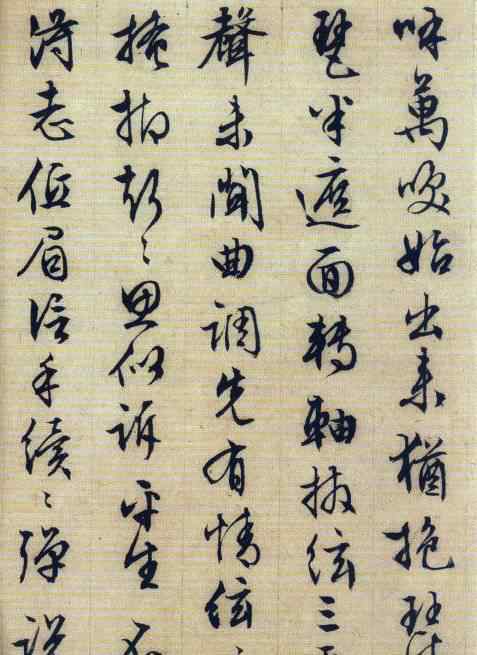 呼萬喚始出来猶抱琵
琶半遮面轉軸撥絃三
聲未聞曲調先有情絃
掩抑聲〻思似訴平生不
得志低眉信手續〻彈説